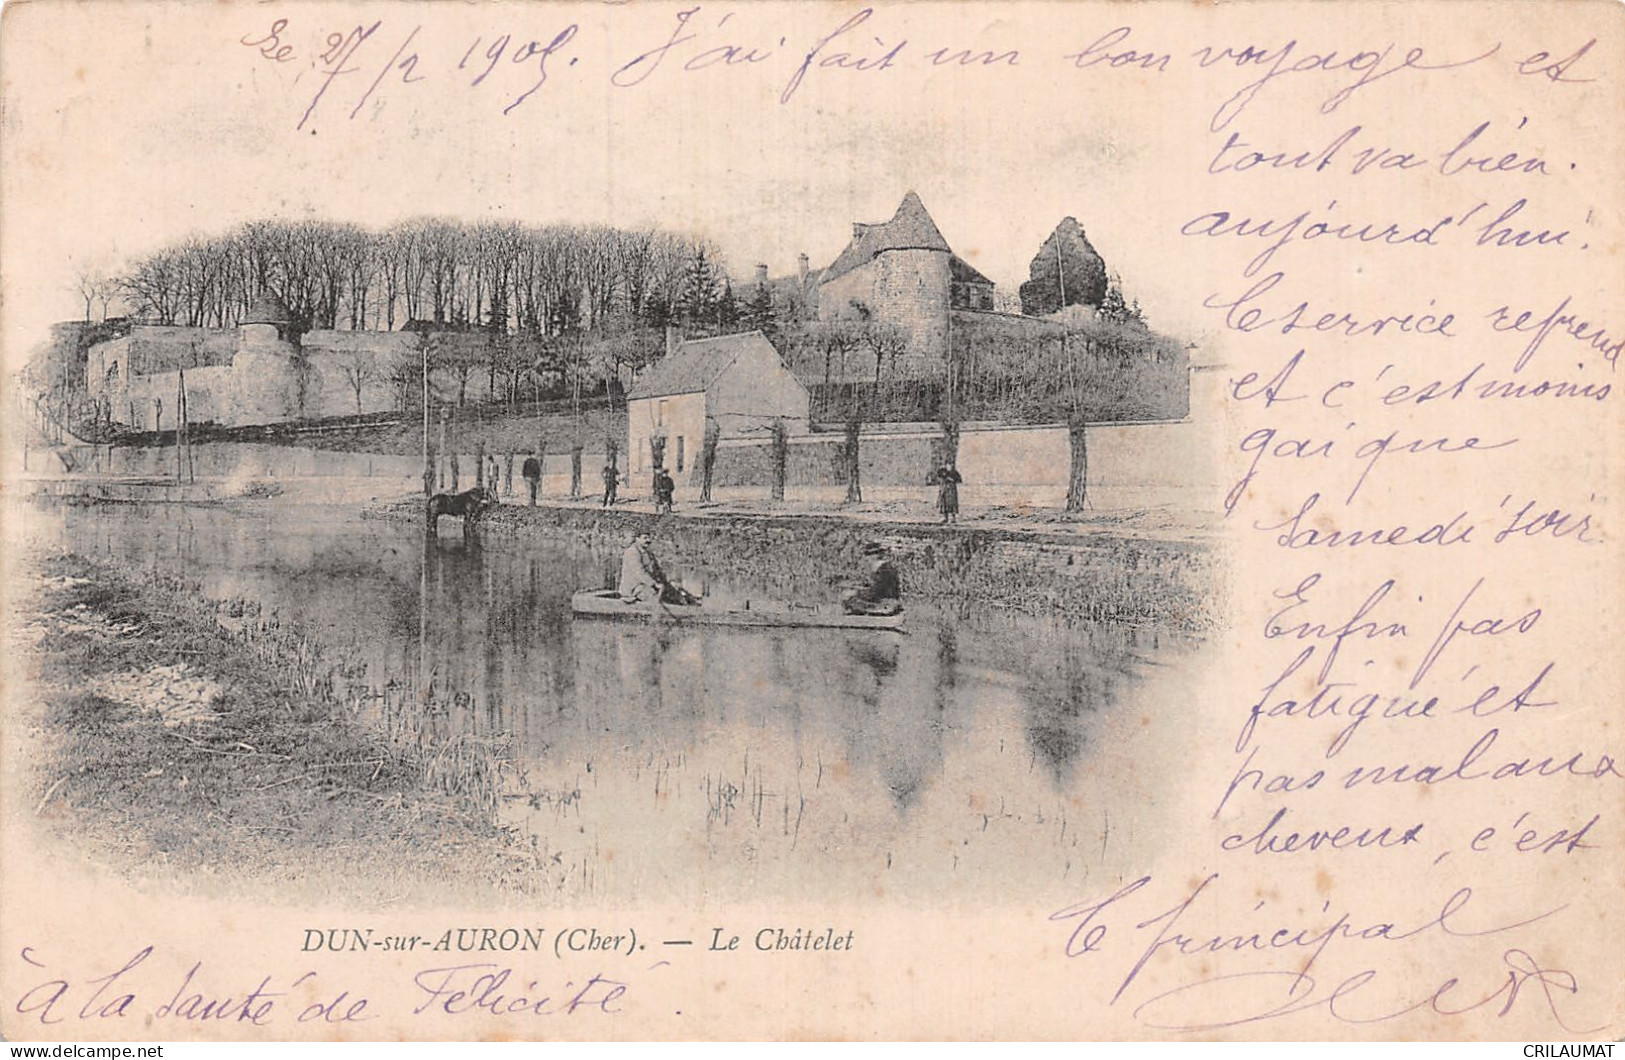 Le 27/2 1905. J'ai fait un bon voyage et
tout va bien.
aujourd'hui.
le service reprend
et c'est moins
gai que
samedi soir.
Enfin pas
fatigué et
pas mal aux
cheveux, c'est
le principal
à la santé de Félicité.
DUN-sur-AURON (Cher). — Le Châtelet
CRILAUMAT